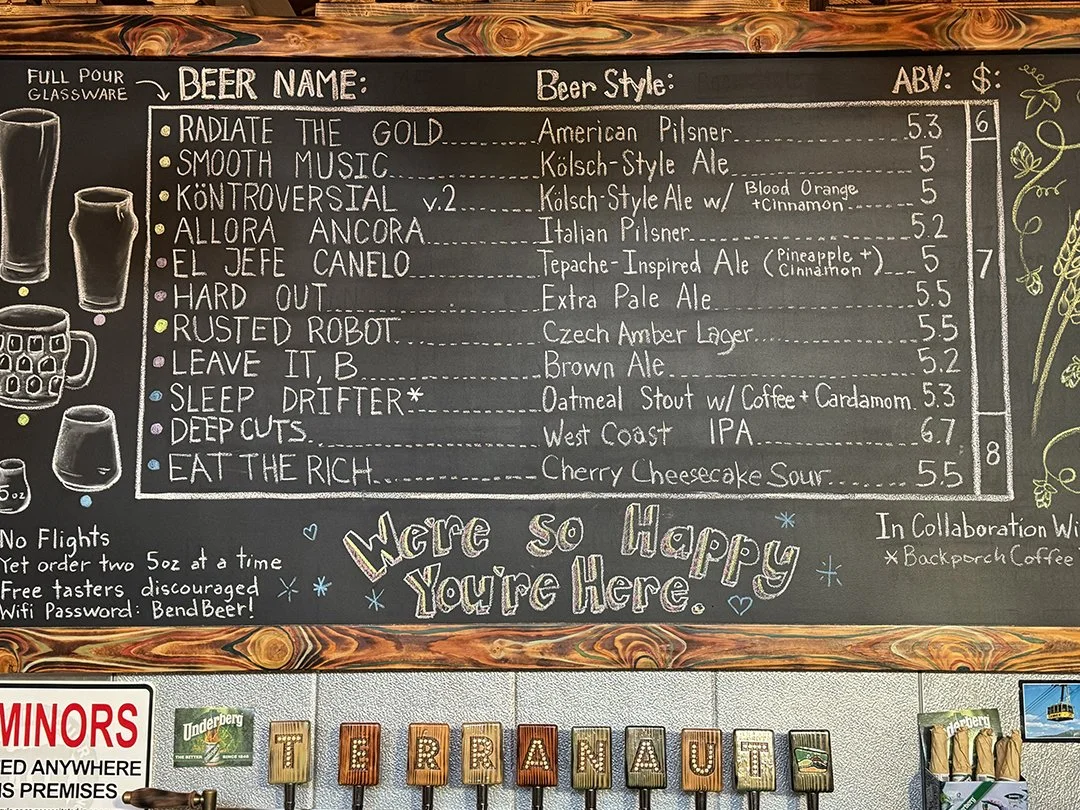 FULL POUR
GLASSWARE
BEER NAME: Beer Style: ABV: $:
RADIATE THE GOLD American Pilsner 5.3 6
SMOOTH MUSIC Kölsch-Style Ale 5
KöNTROVERSIAL v.2 Kölsch-Style Ale w/ Blood Orange +Cinnamon 5
ALLORA ANCORA Italian Pilsner 5.2
EL JEFE CANELO Tepache-Inspired Ale (Pineapple + Cinnamon) 5 7
HARD OUT Extra Pale Ale 5.5
RUSTED ROBOT Czech Amber Lager 5.5
LEAVE IT, B Brown Ale 5.2
SLEEP DRIFTER* Oatmeal Stout w/ Coffee + Cardamom 5.3
DEEP CUTS West Coast IPA 6.7
EAT THE RICH Cherry Cheesecake Sour 5.5 8
5oz
No Flights
Yet order two 5oz at a time
Free tasters discouraged
Wifi Password: BendBeer!
We're So Happy
You're Here.
In Collaboration Wi
*Backporch Coffee
MINORS
ED ANYWHERE
IS PREMISES
Underberg
TERRANAUT
derberg